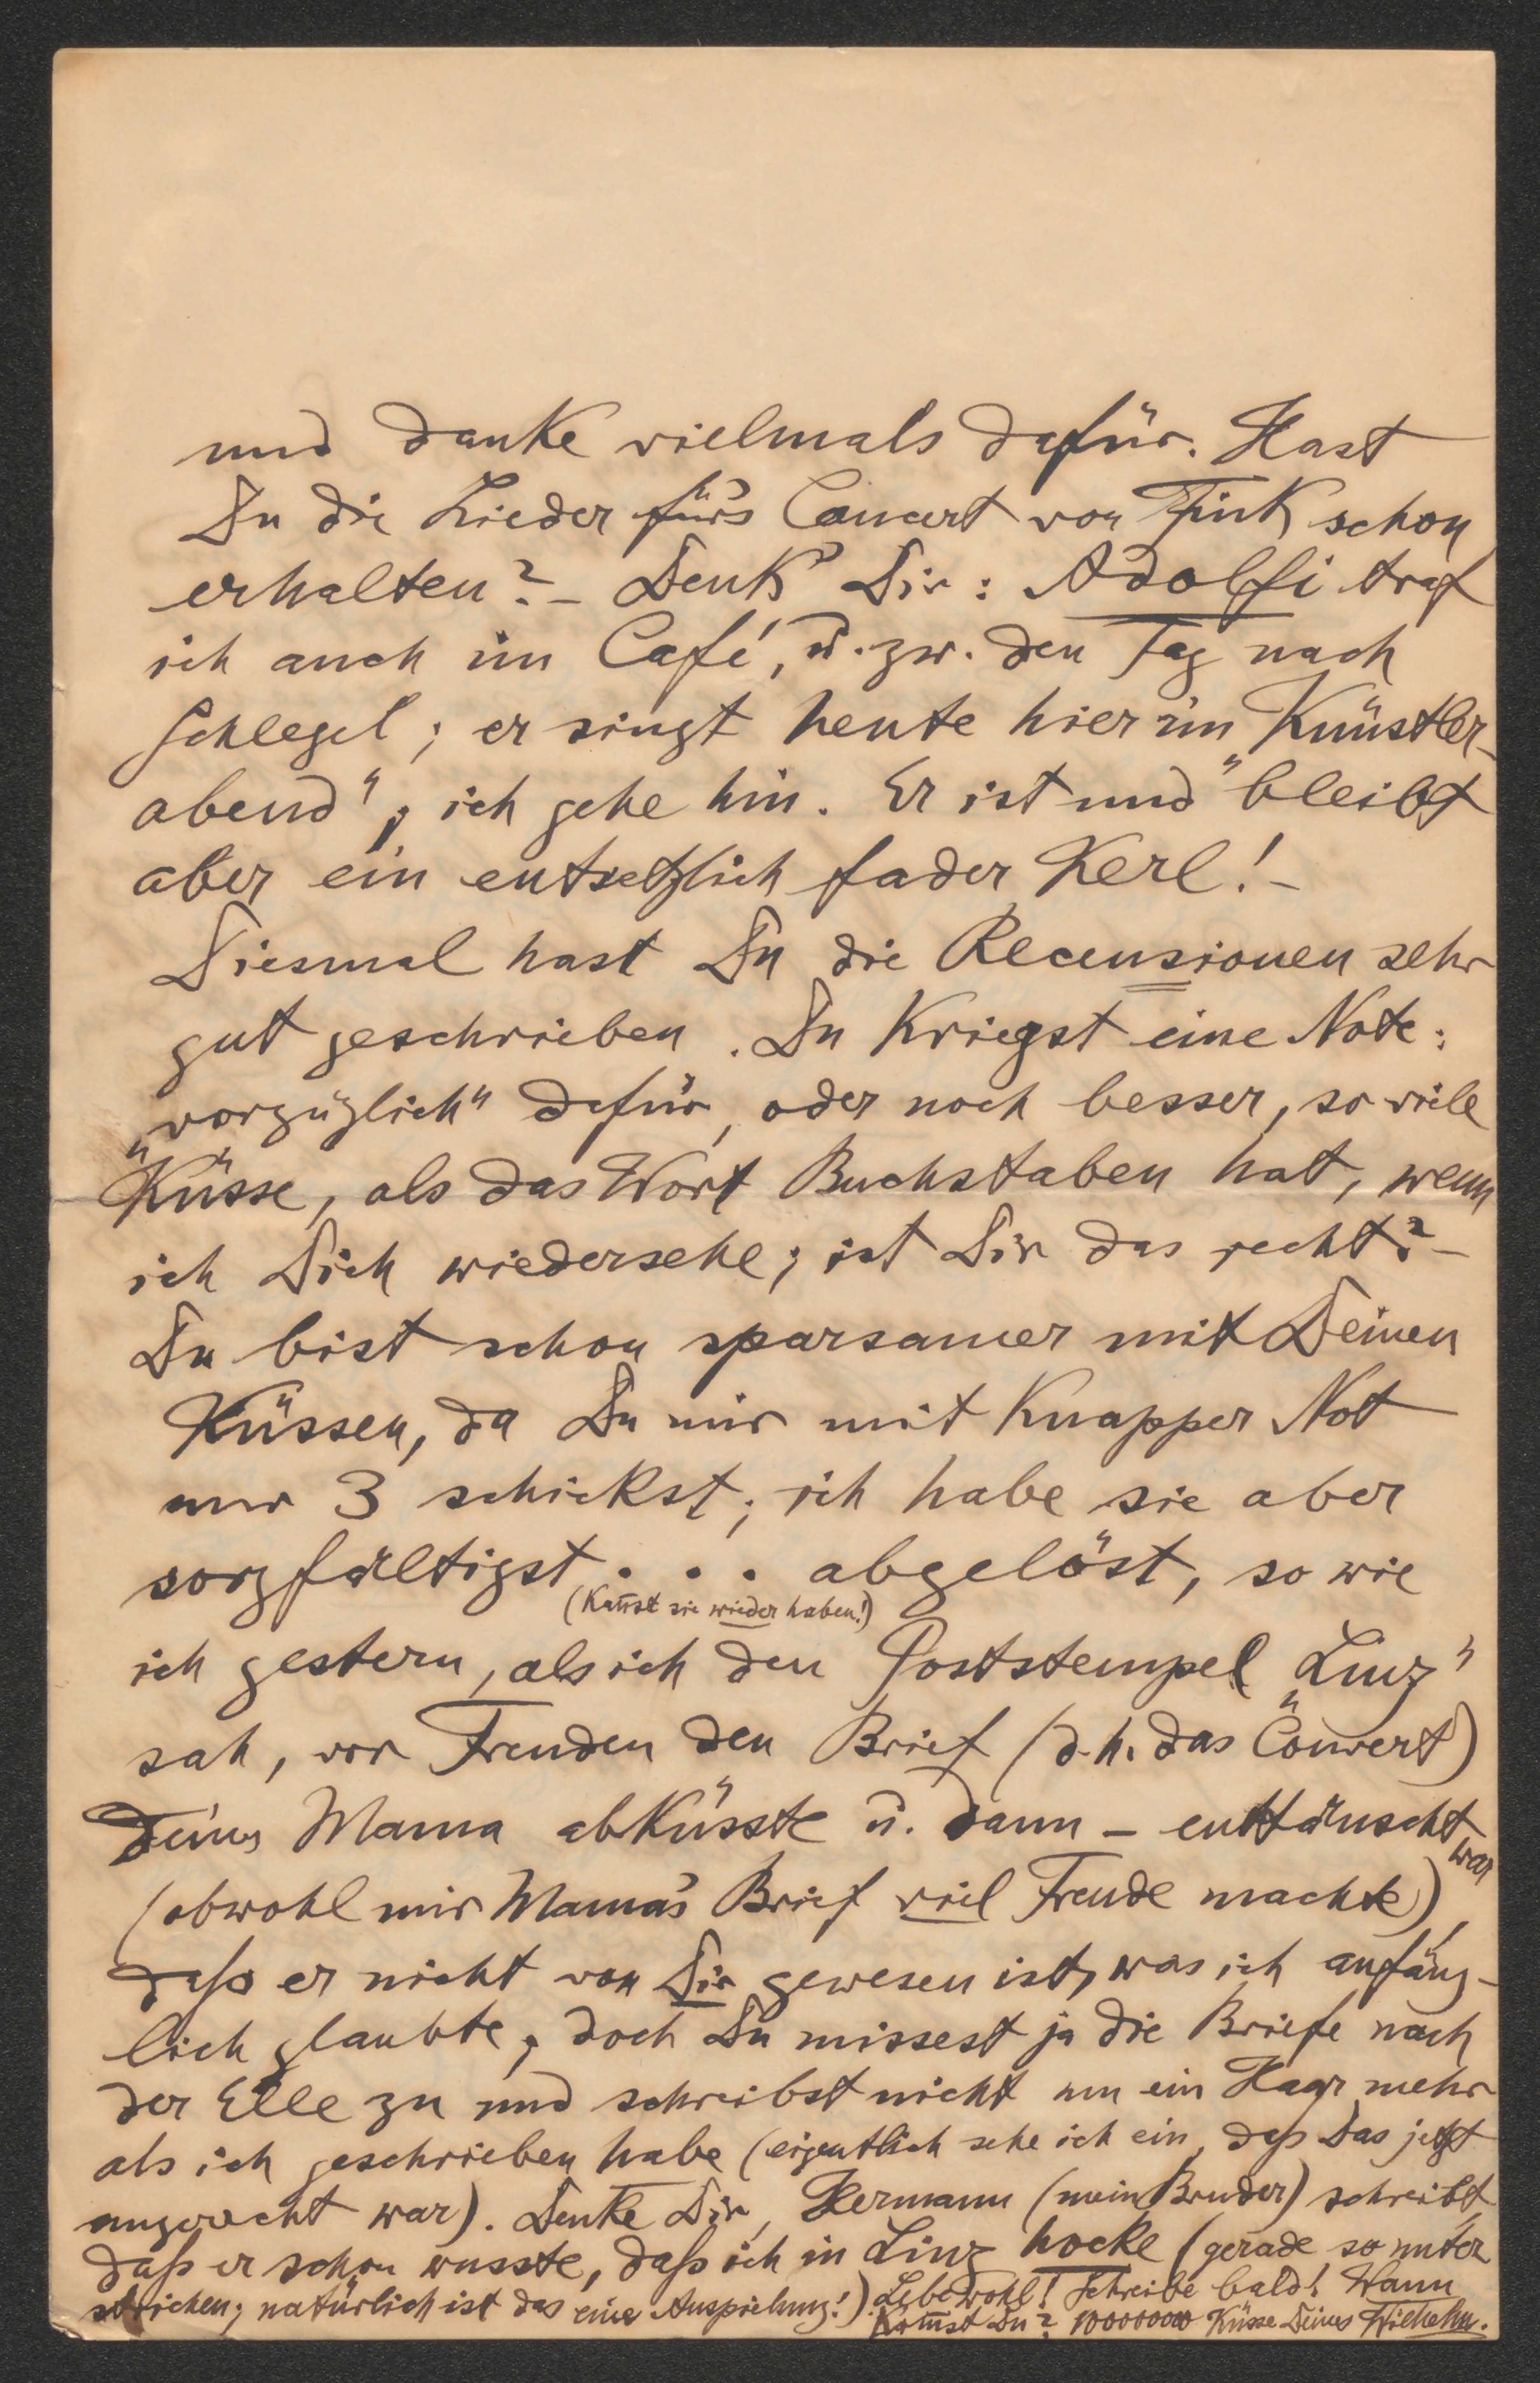 und danke vielmals dafür. Hast
Du die Lieder für's Concert von Fink schon
erhalten? – Denk' Dir: Adolfi traf
ich auch im Café, u. zw. den Tag nach
Schlegel; er singt heute hier im „Künstler-
abend", ich gehe hin. Er ist und bleibt
aber ein entsetzlich fader Kerl! –
Diesmal hast Du die Recensionen sehr
gut geschrieben. Du kriegst eine Note:
„vorzüglich" dafür, oder noch besser, so viele
Küsse, als das Wort Buchstaben hat, wenn
ich Dich wiedersehe; ist Dir das recht? –
Du bist schon sparsamer mit Deinen
Küssen, da Du mir mit knapper Not
nur 3 schickst; ich habe sie aber
sorgfältigst . . . abgelöst, so wie
(Kannst sie wieder haben!)
ich gestern, als ich den Poststempel „Linz"
sah, vor Freuden den Brief (d. h. das Couvert)
Deiner Mama abküsste u. dann – enttäuscht war
(obwohl mir Mama's Brief viel Freude machte),
daß er nicht von Dir gewesen ist, was ich anfäng-
lich glaubte; doch Du missest ja die Briefe nach
der Elle zu und schreibst nicht um ein Haar mehr
als ich geschrieben habe (eigentlich sehe ich ein, daß das jetzt
ungerecht war). Denke Dir, Hermann (mein Bruder) schreibt,
daß er schon wusste, daß ich in Linz hocke (gerade so unter
strichen; natürlich ist das eine Anspielung!). Lebe wohl! Schreibe bald! Wann
kommst Du? 10000000 Küsse Deines Wilhelm.